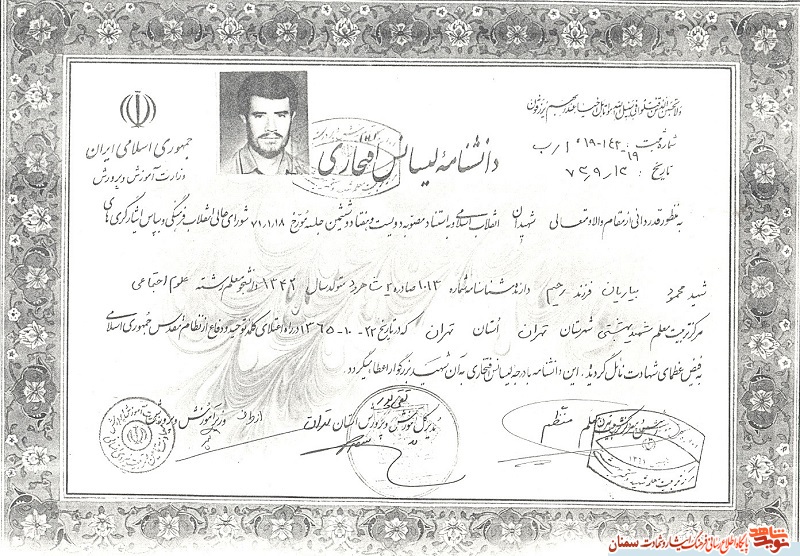 ولا تحسبن الذین قتلوا فی سبیل الله امواتا بل احیاء عند ربهم یرزقون
جمهوری اسلامی ایران
وزارت آموزش و پرورش
دانشنامهٔ لیسانس افتخاری
شماره ثبت:
تاریخ: ۷۲٫۹٫۱۲
به منظور قدردانی از مقام والا و متعالی شهیدان انقلاب اسلامی و به استناد مصوبه دویست و هفتاد و ششمین جلسه مورخ ۷۱٫۱٫۱۸ شورای عالی انقلاب فرهنگی و بپاس ایثارگری های
شهید محمود بیاریان فرزند رحیم دارنده شناسنامه شماره ۱۰۱۳ صادره متولد سال ۱۳۴۲ دانشجو معلم رشته علوم اجتماعی
مرکز تربیت معلم شهید بهشتی شهرستان تهران استان تهران که در تاریخ ۲۲-۱۰-۱۳۶۵ در راه اعتلای کلمه توحید و دفاع از نظام مقدس جمهوری اسلامی
به فیض عظمای شهادت نائل گردید. این دانشنامه با درجه لیسانس افتخاری به آن شهید بزرگوار اعطا میگردد.
تقی پور
مدیر کل آموزش و پرورش استان تهران
از طرف وزیر آموزش و پرورش
منتظم
نوید شاهد
پایگاه اطلاع رسانی فرهنگ ایثار و شهادت سمنان